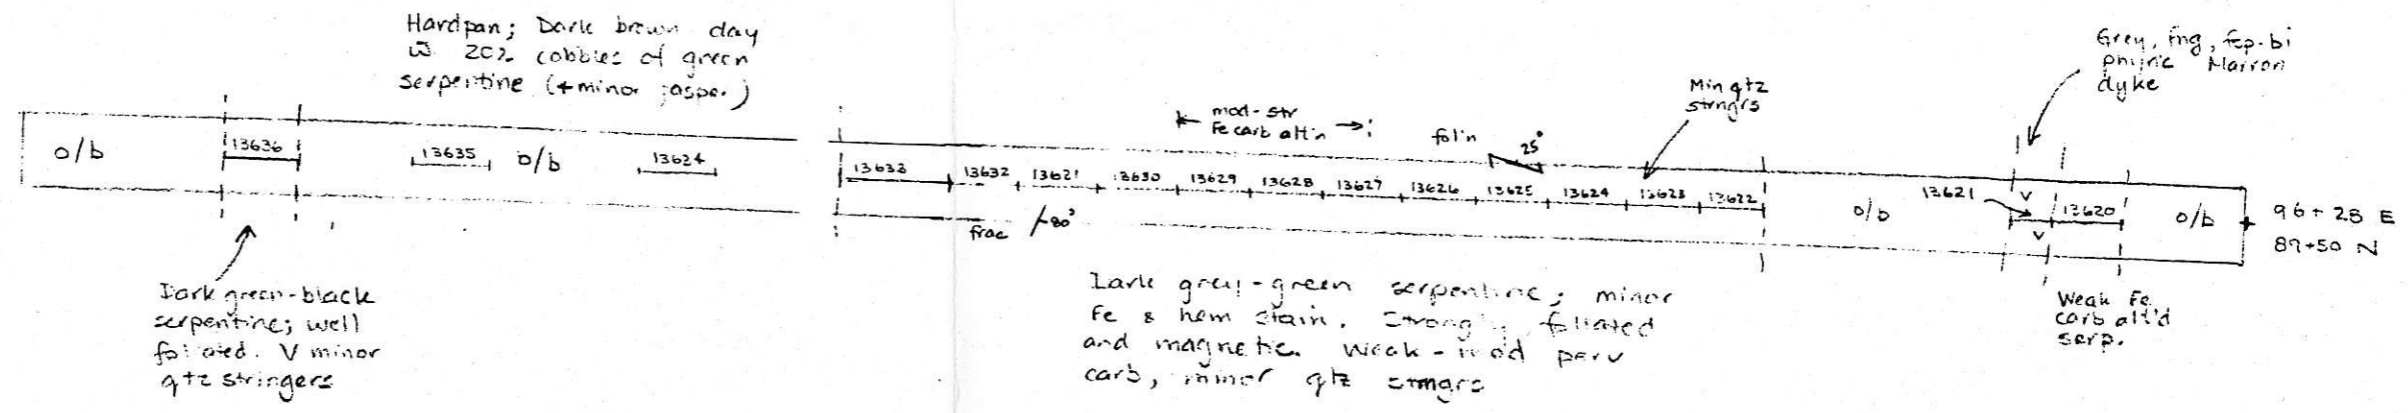 Hardpan; Dark brown clay
w 20% cobbles of green
serpentine (+minor jasper)
Grey, fng, fsp-bi
phyric Marron
dyke
Min qtz
strngrs
mod-str
Fe carb alt'n
fol'n
25°
o/b
13636
13635
o/b
13634
13633
13632
13631
13630
13629
13628
13627
13626
13625
13624
13623
13622
o/b
13621
v
v
13620
o/b
96+28 E
89+50 N
frac
80°
Dark green-black
serpentine; well
foliated. V minor
qtz stringers
Dark grey-green serpentine; minor
Fe & hem stain. Strongly foliated
and magnetic. Weak-mod perv
carb, minor qtz strngrs
Weak Fe
carb alt'd
serp.